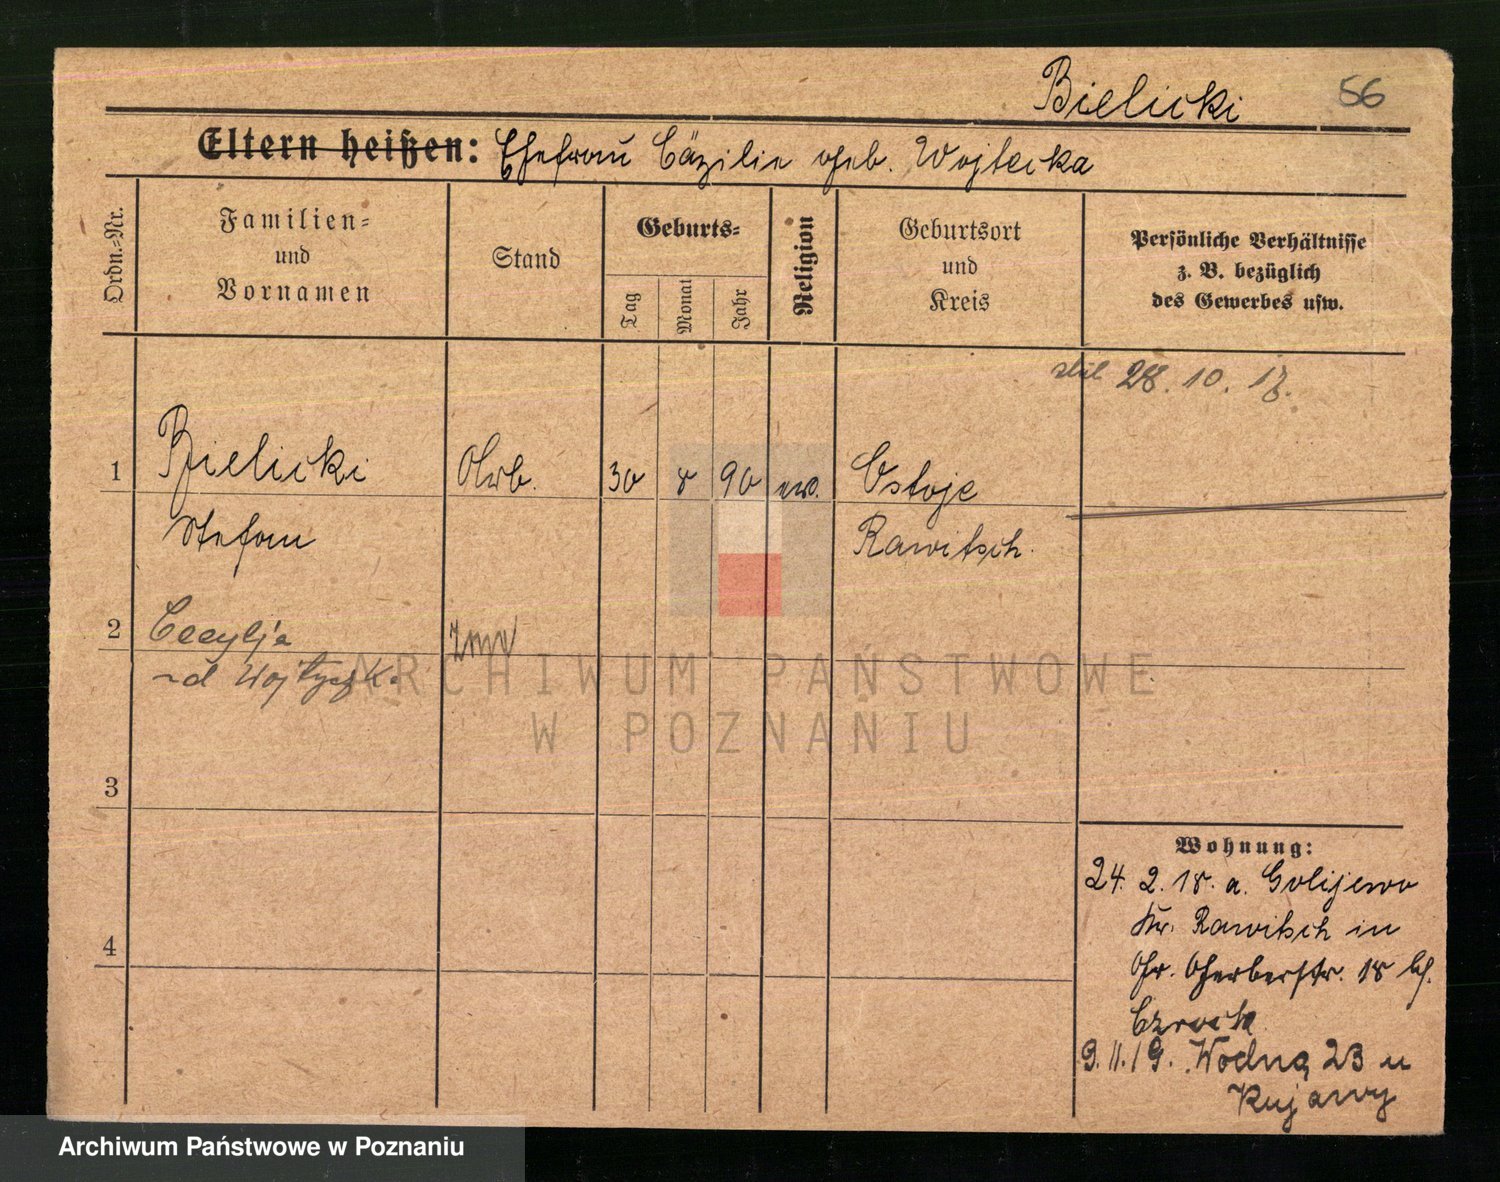 Bielicki 56
Eltern heißen: Ehefrau Cäzilie geb. Wojtecka
Ordn.=Nr.
Familien=
und
Vornamen
Stand
Geburts=
Tag
Monat
Jahr
Religion
Geburtsort
und
Kreis
Persönliche Verhältnisse
z. B. bezüglich
des Gewerbes usw.
28. 10. 17.
1 Bielicki Arb. 30 8 90 Ostoje
Stefan Rawitsch
2 Cecylja żona
3
4
Wohnung:
24. 2. 18. a. Golijewo
Kr. Rawitsch in
Gr. Gerberstr. 18 bf.
9.11.19. Wodna 23 u
Kujawy
ARCHIWUM PAŃSTWOWE
W POZNANIU
Archiwum Państwowe w Poznaniu